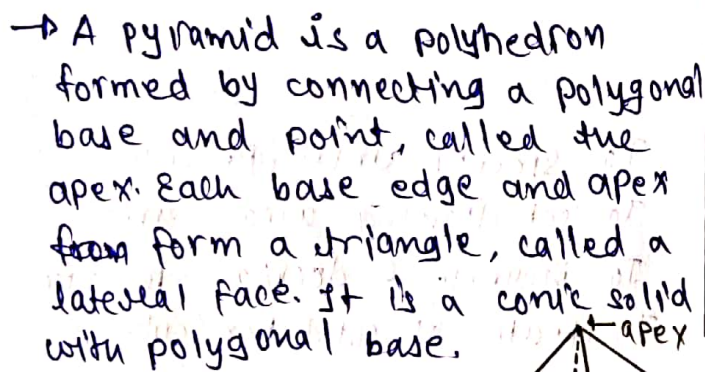 → A pyramid is a polyhedron
formed by connecting a polygonal
base and point, called the
apex. Each base edge and apex
form a triangle, called a
lateral face. It is a conic solid
with polygonal base.
apex